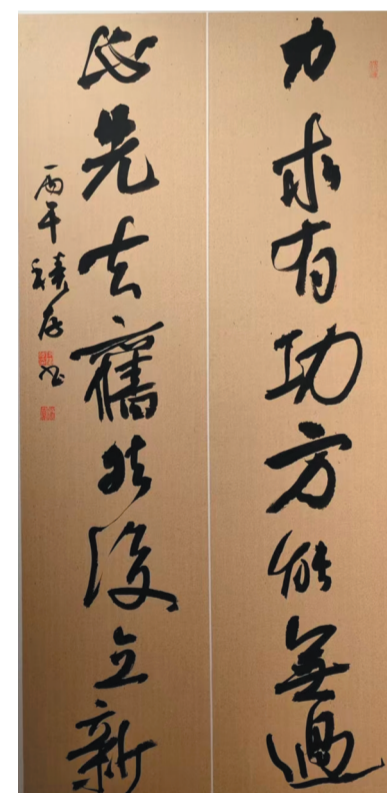 力求有功方能無過
必先去舊然後立新
丙午